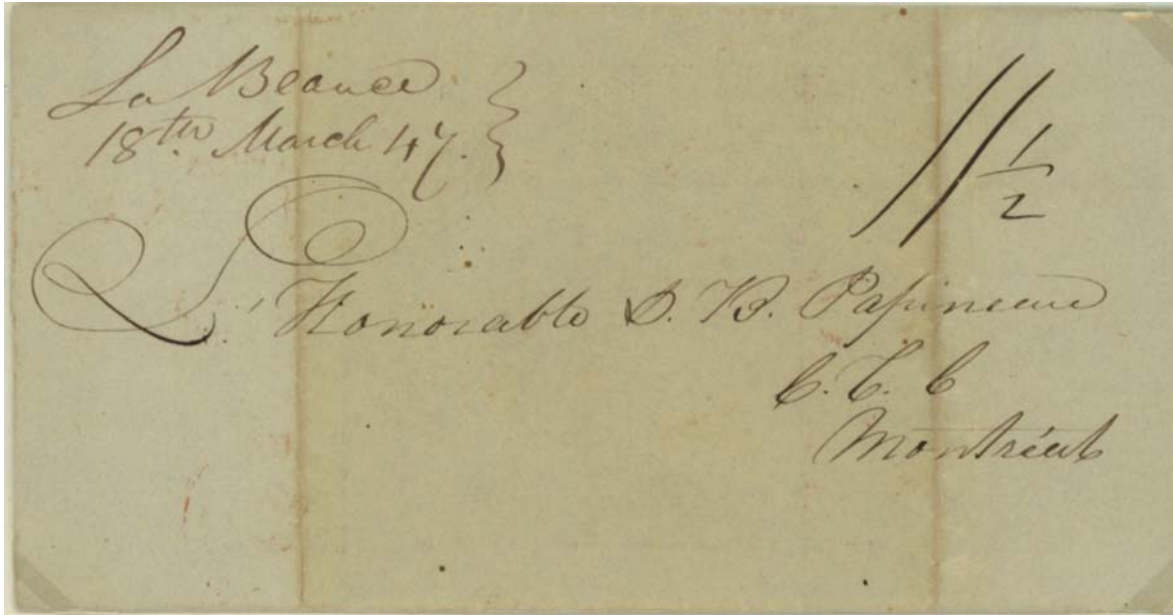 La Beauce
18th March 47.
11 1/2
L'Honorable D. B. Papineau
C. T. C
Montréal